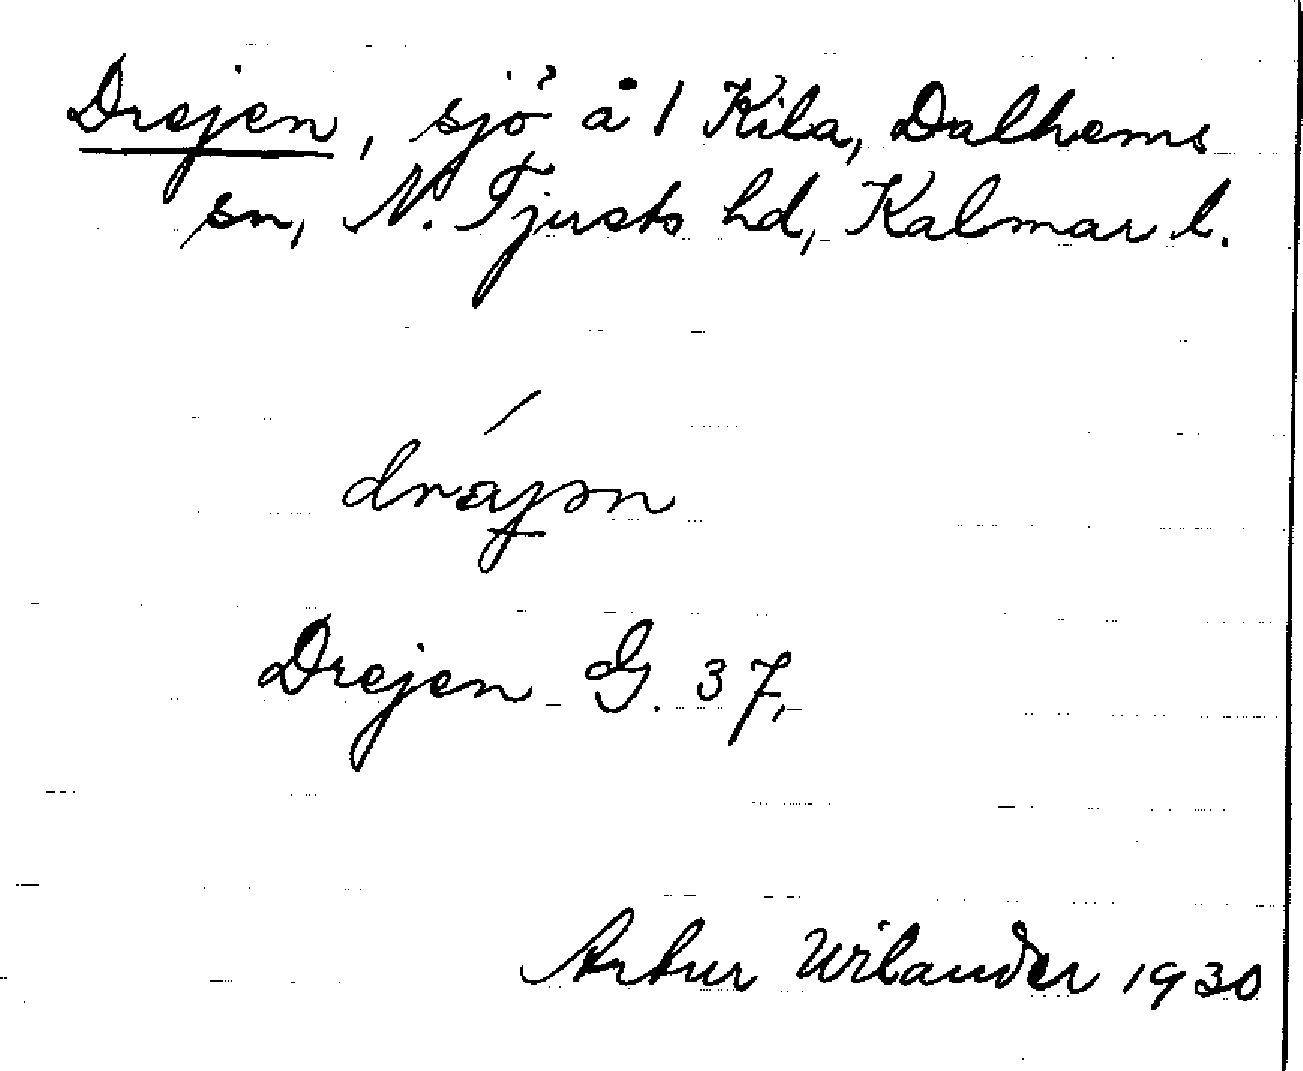 Drejen, sjö å 1 Kila, Dalhems
sn, N. Tjusts hd, Kalmar l.
dräjən
Drejen G. 37,
Artur Wilander 1930